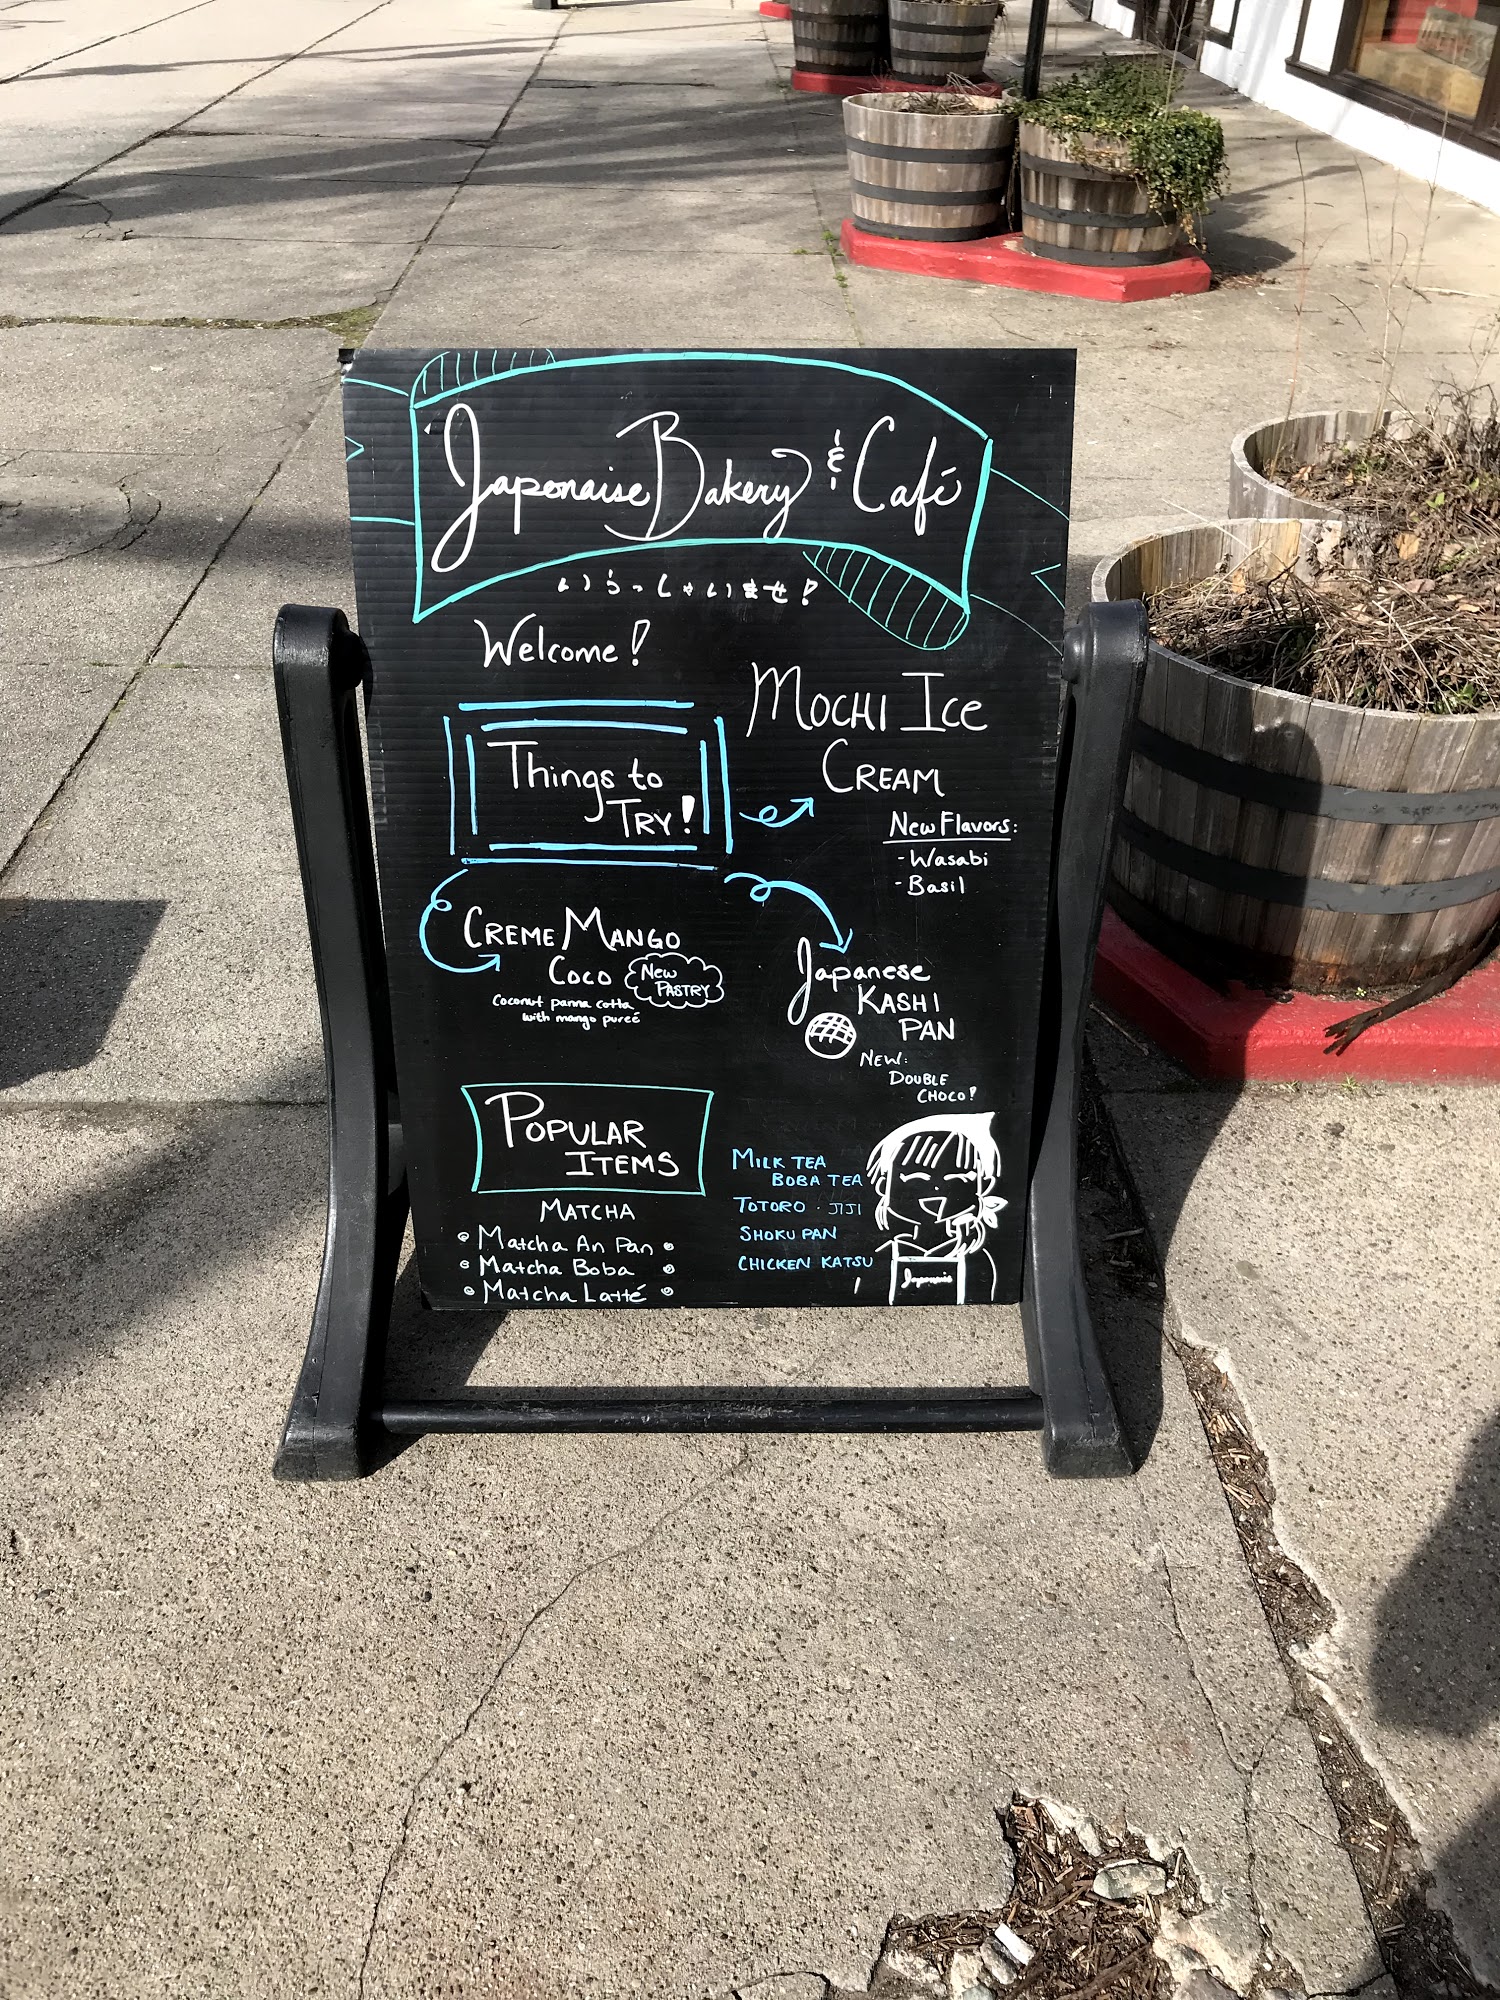 Japonaise Bakery & Café
いらっしゃいませ!
Welcome!
Things to
TRY!
MOCHI ICE
CREAM
New Flavors:
- Wasabi
- Basil
CREME MANGO
COCO
New
PASTRY
Coconut panna cotta
with mango pureé
Japanese
KASHI
PAN
NEW:
DOUBLE
CHOCO!
POPULAR
ITEMS
MATCHA
Matcha An Pan
Matcha Boba
Matcha Latté
MILK TEA
BOBA TEA
TOTORO · JIJI
SHOKU PAN
CHICKEN KATSU
Japonaise